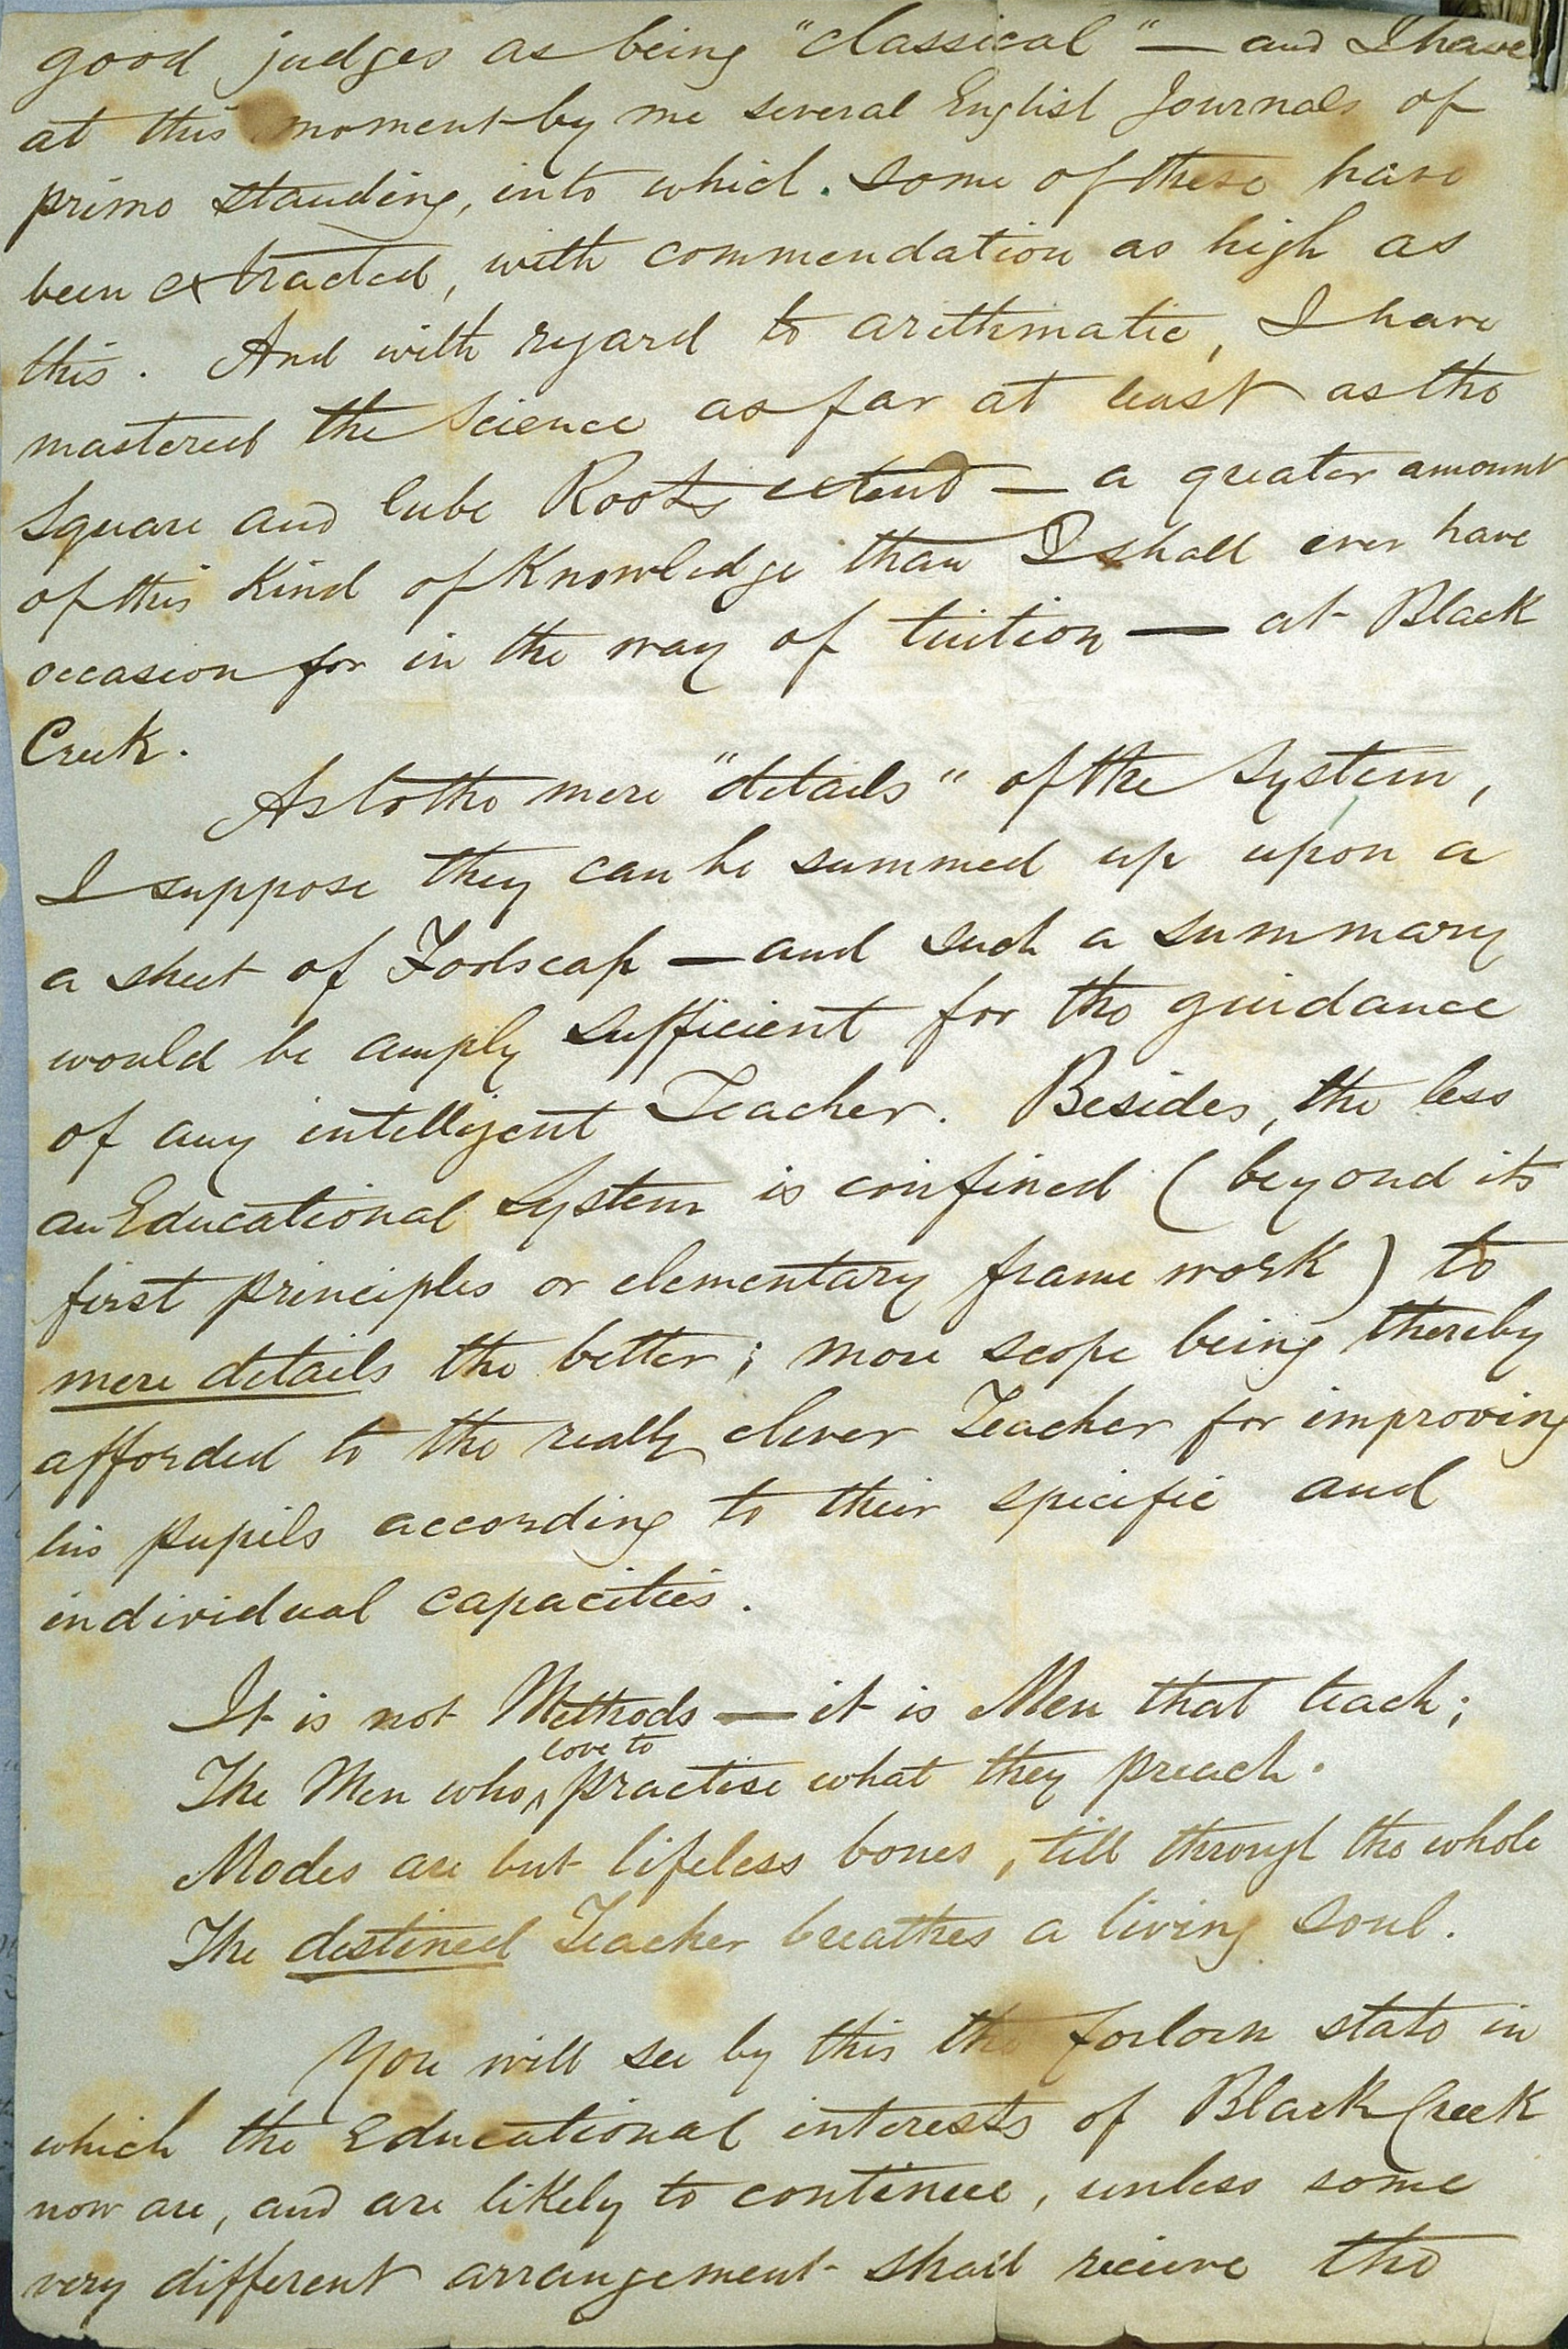 good judges as being "classical" — and I have
at this moment by me several English Journals of
prime standing, into which some of these have
been extracted, with commendation as high as
this. And with regard to arithmatic, I have
mastered the Science as far at least as the
Square and Cube Roots extend — a greater amount
of this Kind of Knowledge than I shall ever have
occasion for in the way of tuition — at Black
Creek.
As to the mere "details" of the System,
I suppose they can be summed up upon a
a sheet of Foolscap — and such a summary
would be amply sufficient for the guidance
of any intelligent Teacher. Besides, the less
an Educational System is confined (beyond its
first principles or elementary frame work) to
mere details the better; more scope being thereby
afforded to the really clever Teacher for improving
his pupils according to their specific and
individual capacities.
It is not Methods — it is Men that teach;
love to
The Men who ^ practise what they preach.
Modes are but lifeless bones, till through the whole
The destined Teacher breathes a living soul.
You will see by this the forlorn state in
which the Educational interests of Black Creek
now are, and are likely to continue, unless some
very different arrangement shall recieve the